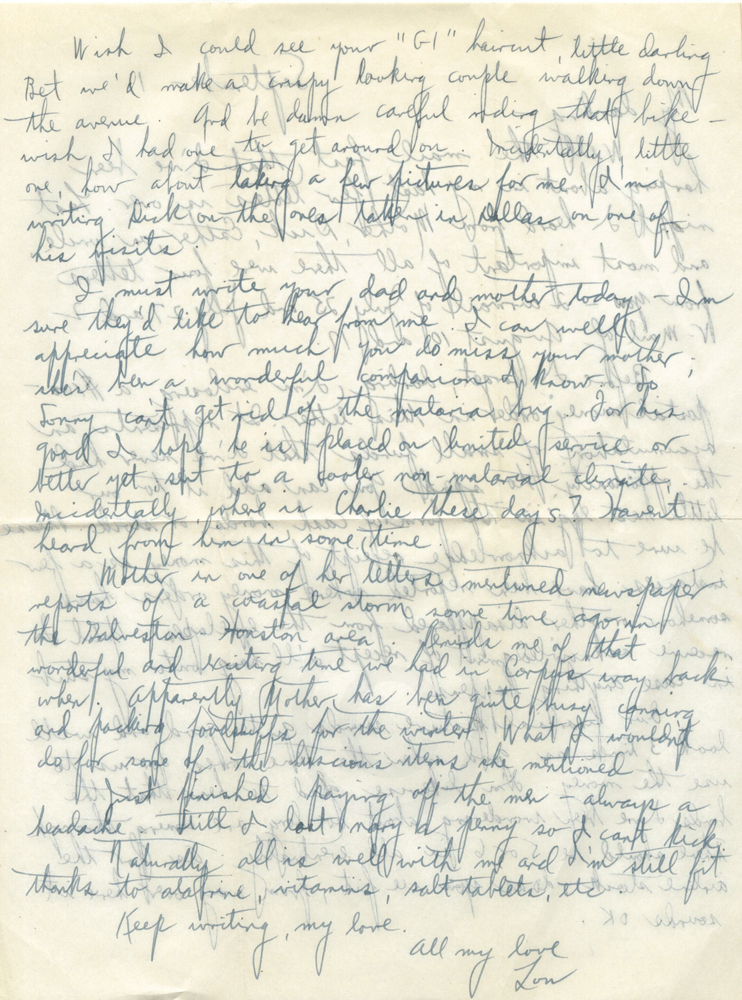 Wish I could see your "GI" haircut, little darling
Bet we'd make a crispy looking couple walking down
the avenue. And be damn careful riding that bike -
wish I had one to get around on. Incidentally, little
one, how about taking a few pictures for me. I'm
writing Dick on the ones taken in Dallas on one of
his visits.
I must write your dad and mother today - I'm
sure they'd like to hear from me. I can well
appreciate how much you do miss your mother,
shes been a wonderful companion I know. So
Sonny can't get rid of the malaria bug. For his
good I hope he is placed on limited service or
better yet, sent to a cooler non-malarial climate.
Incidentally where is Charlie these days? Havent
heard from him in some time.
Mother in one of her letters mentioned newspaper
reports of a coastal storm some time ago in
the Galveston Houston area. Reminds me of that
wonderful and exciting time we had in Corpus way back
when. Apparently Mother has been quite busy canning
and packing foodstuffs for the winter. What I wouldn't
do for some of the luscious items she mentioned
Just finished paying off the men - always a
headache. Still I lost nary a penny so I can't kick.
Naturally all is well with me and I'm still fit
thanks to atabrine, vitamins, salt tablets, etc.
Keep writing, my love.
All my love
Lou